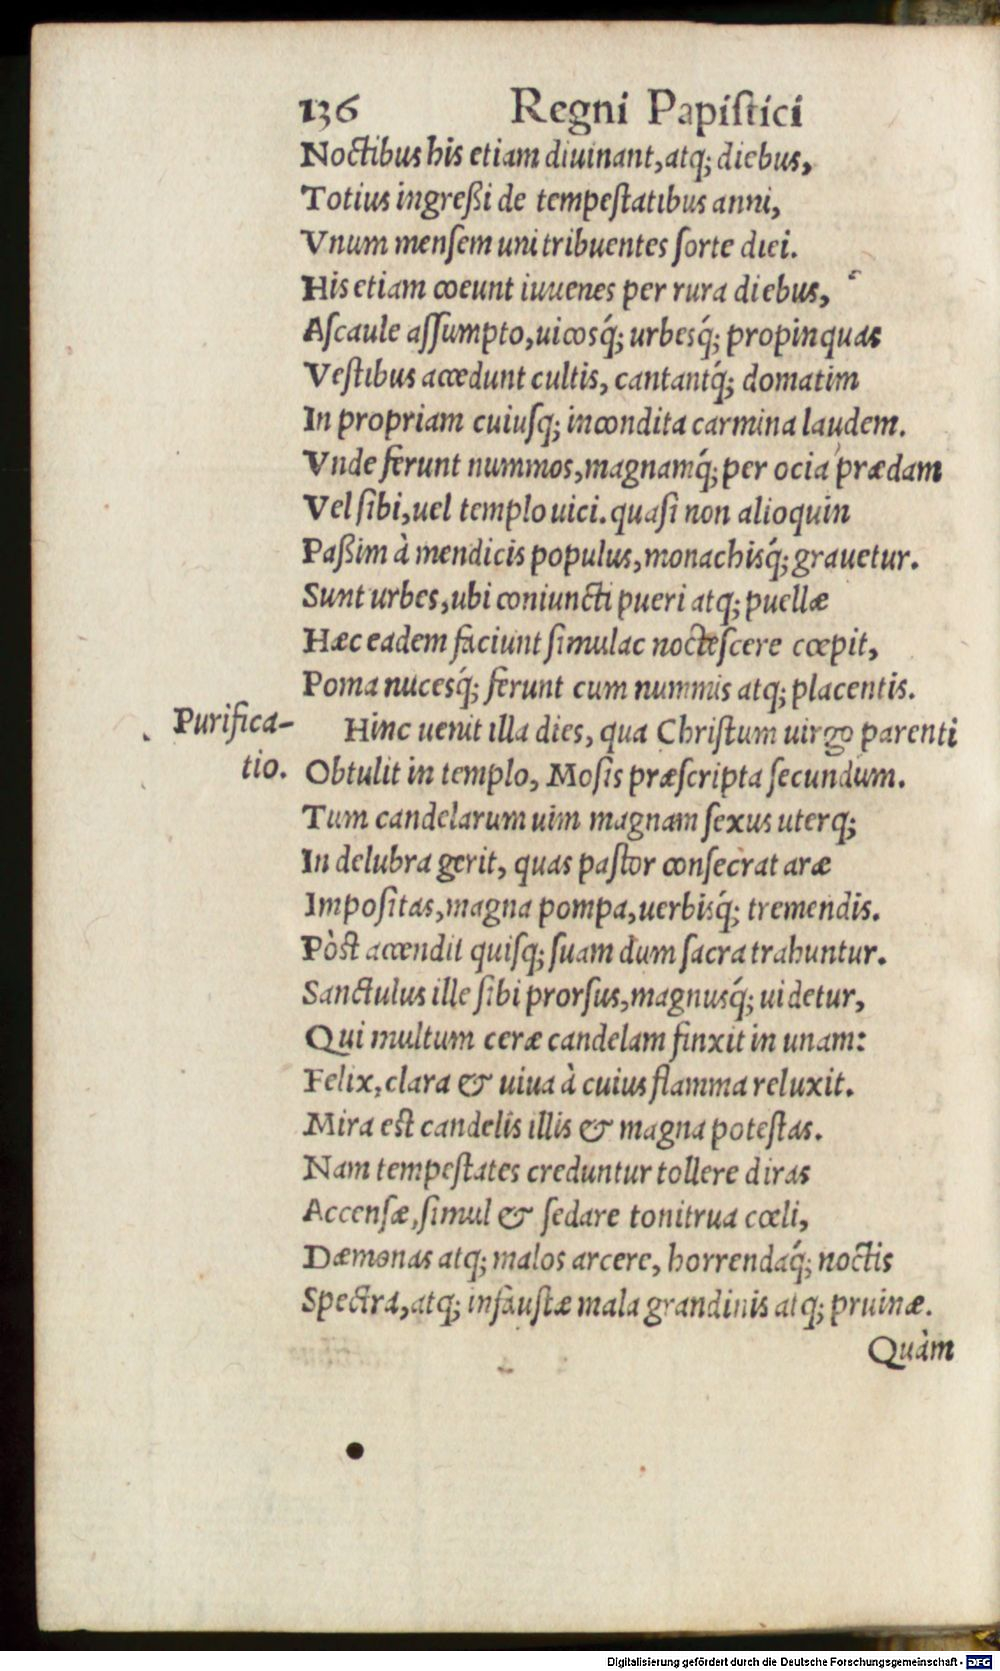 136 Regni Papiſtici
Noctibus his etiam diuinant, atq; diebus,
Totius ingreßi de tempeſtatibus anni,
Vnum menſem uni tribuentes ſorte diei.
His etiam coeunt iuuenes per rura diebus,
Aſcaule aſſumpto, uicosq́; urbesq́; propinquas
Veſtibus accedunt cultis, cantantq́; domatim
In propriam cuiuſq; incondita carmina laudem.
Vnde ferunt nummos, magnamq́; per ocia prædam
Vel ſibi, uel templo uici. quaſi non alioquin
Paßim à mendicis populus, monachisq́; grauetur.
Sunt urbes, ubi coniuncti pueri atq; puellæ
Hæc eadem faciunt ſimulac nocteſcere cœpit,
Poma nucesq́; ferunt cum nummis atq; placentis.
Purifica-
tio.
Hinc uenit illa dies, qua Chriſtum uirgo parenti
Obtulit in templo, Moſis præſcripta ſecundum.
Tum candelarum uim magnam ſexus uterq;
In delubra gerit, quas paſtor conſecrat aræ
Impoſitas, magna pompa, uerbisq́; tremendis.
Pòst accendit quiſq; ſuam dum ſacra trahuntur.
Sanctulus ille ſibi prorſus, magnusq́; uidetur,
Qui multum ceræ candelam finxit in unam:
Felix, clara & uiua à cuius flamma reluxit.
Mira est candelis illis & magna poteſtas.
Nam tempeſtates creduntur tollere diras
Accenſæ, ſimul & ſedare tonitrua cœli,
Dæmonas atq; malos arcere, horrendaq́; noctis
Spectra, atq; infauſtæ mala grandinis atq; pruinæ.
Quàm
Digitalisierung gefördert durch die Deutsche Forschungsgemeinschaft - DFG